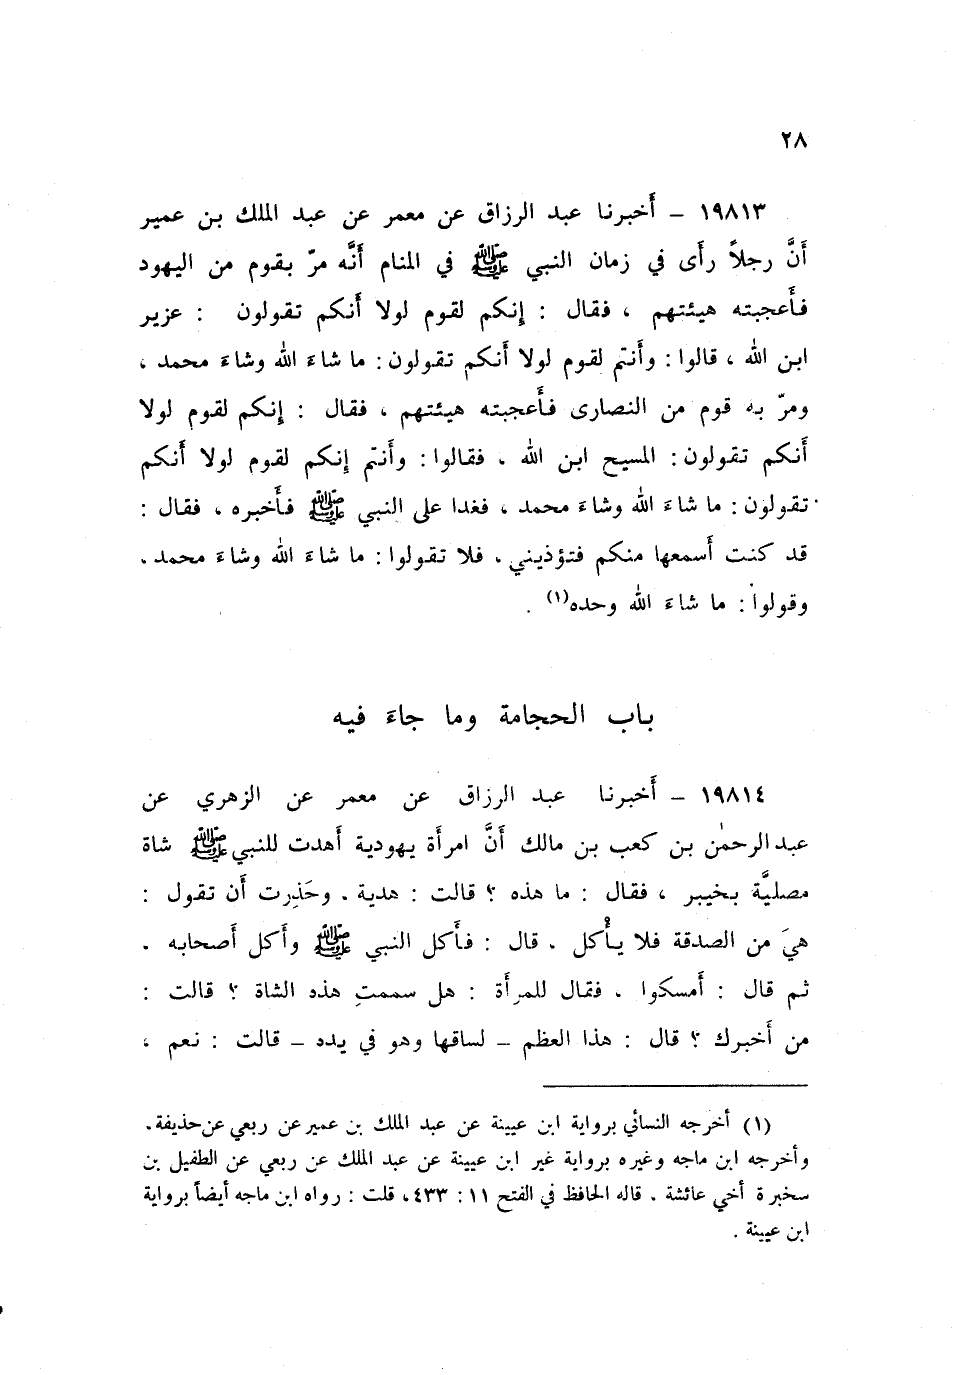 ٢٨
١٩٨١٣ – أَخبرنا عبد الرزاق عن معمر عن عبد الملك بن عمير
أَنَّ رجلاً رأَى في زمان النبي ﷺ في المنام أَنَّه مرّ بقوم من اليهود
فأَعجبته هيئتهم ، فقال : إِنكم لقوم لولا أَنكم تقولون : عزير
ابن الله ، قالوا : وأَنتم لقوم لولا أَنكم تقولون : ما شاءَ الله وشاءَ محمد ،
ومرّ به قوم من النصارى فأَعجبته هيئتهم ، فقال : إِنكم لقوم لولا
أَنكم تقولون : المسيح ابن الله ، فقالوا : وأَنتم إِنكم لقوم لولا أَنكم
تقولون : ما شاءَ الله وشاءَ محمد ، فغدا على النبي ﷺ فأَخبره ، فقال :
قد كنت أَسمعها منكم فتؤذيني ، فلا تقولوا : ما شاءَ الله وشاءَ محمد .
وقولوا : ما شاءَ الله وحده(١) .
باب الحجامة وما جاءَ فيه
١٩٨١٤ – أَخبرنا عبد الرزاق عن معمر عن الزهري عن
عبد الرحمٰن بن كعب بن مالك أَنَّ امرأَة يهودية أَهدت للنبي ﷺ شاة
مصليَّة بخيبر ، فقال : ما هذه ؟ قالت : هدية . وحَذِرت أَن تقول :
هيَ من الصدقة فلا يأْكل . قال : فأَكل النبي ﷺ وأَكل أَصحابه .
ثم قال : أَمسكوا . فقال للمرأَة : هل سممتِ هذه الشاة ؟ قالت :
من أَخبرك ؟ قال : هذا العظم – لساقها وهو في يده – قالت : نعم ،
(١) أخرجه النسائي برواية ابن عيينة عن عبد الملك بن عمير عن ربعي عن حذيفة .
وأخرجه ابن ماجه وغيره برواية غير ابن عيينة عن عبد الملك عن ربعي عن الطفيل بن
سخبرة أخي عائشة . قاله الحافظ في الفتح ١١ : ٤٣٣، قلت : رواه ابن ماجه أيضاً برواية
ابن عيينة .